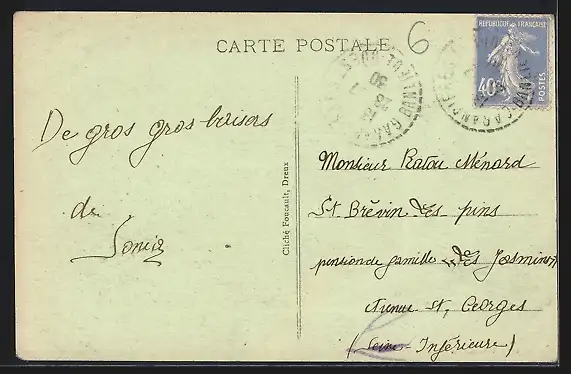 CARTE POSTALE
6
REPUBLIQUE FRANÇAISE
40c
POSTES
30
De gros gros baisers
de
Cliché Foucault, Dreux
Monsieur Ratou Ménard
St Brévin des pins
pension de famille "des Jasmins"
Avenue St, Georges
(Seine-Inférieure)